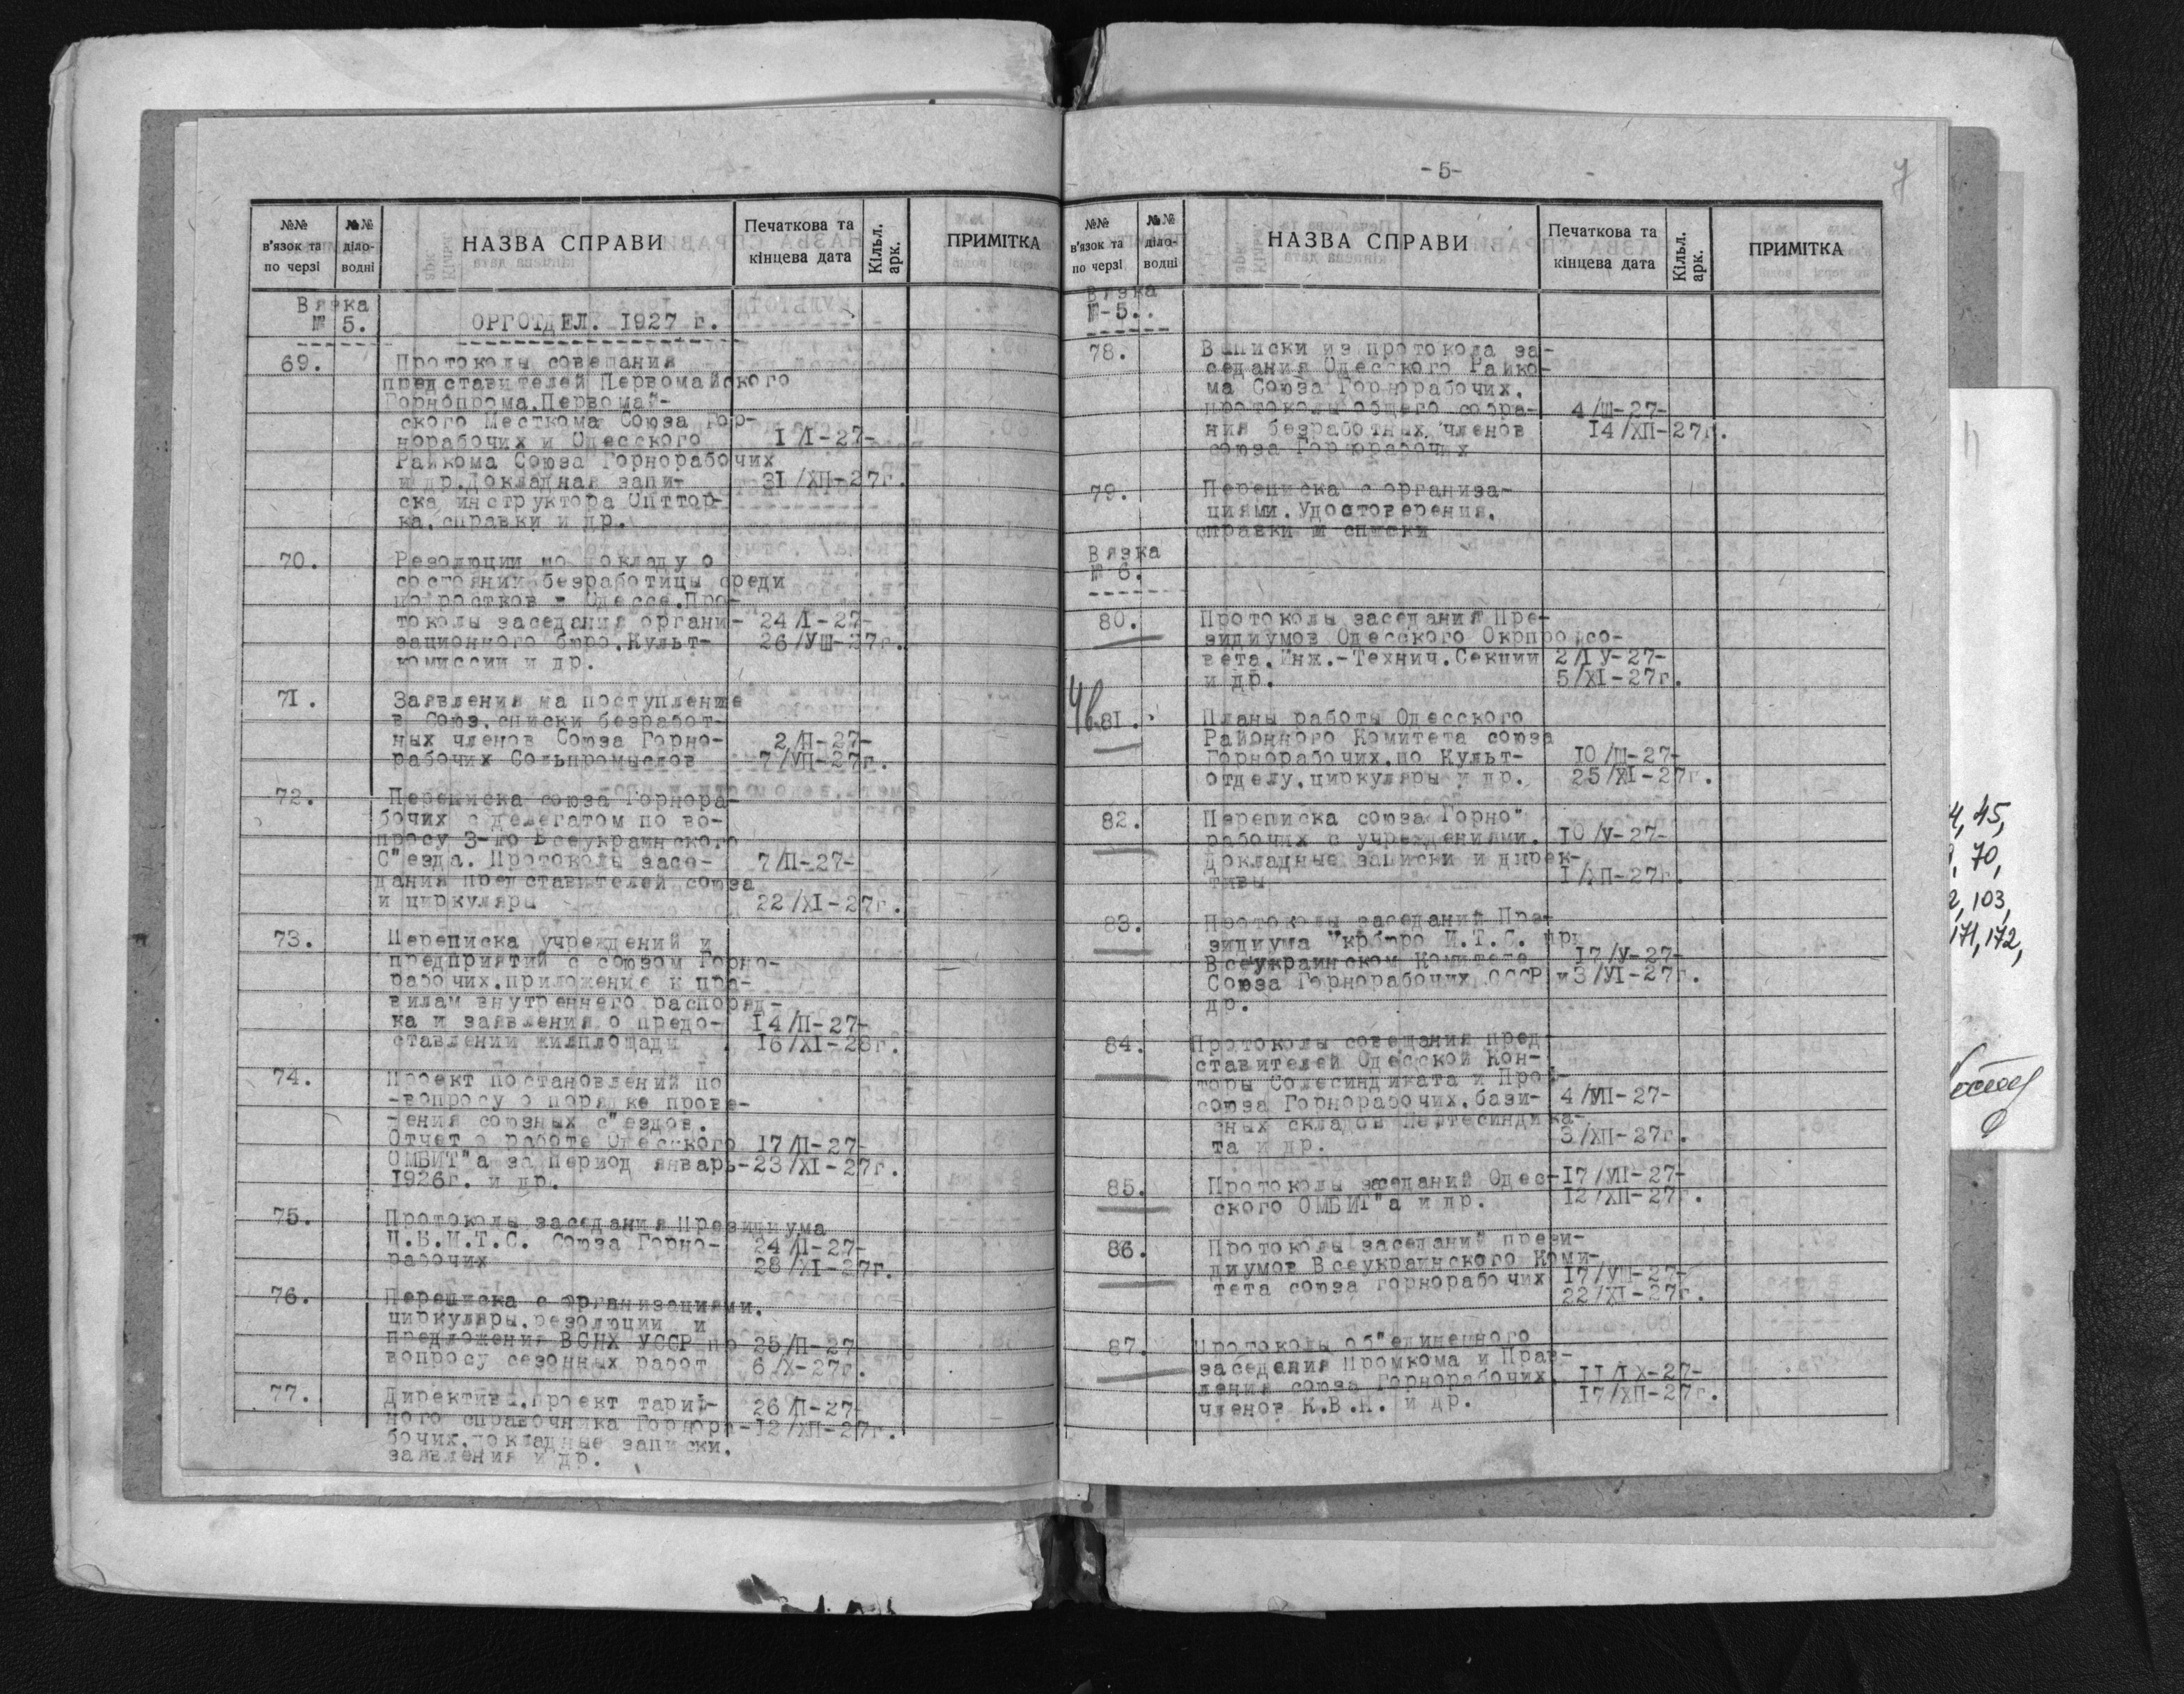 №№
в'язок та
по черзі
№№
діло-
водні
НАЗВА СПРАВИ
Печаткова та
кінцева дата
Кільк.
арк.
ПРИМІТКА
Вязка
№ 5.
ОРГОТДЕЛ. 1927 г.
69.
Протоколы совещания
представителей Первомайского
Горнопрома, Первомай-
ского Месткома Союза Гор-
норабочих и Одесского
Райкома Союза Горнорабочих
и др. Докладная запи-
ска инструктора
ка, справки и др.
1/I-27-
31/XП-27г.
70.
Резолюции по докладу о
состоянии безработицы среди
подростков в Одессе. Про-
токолы заседания органи-
зационного бюро. Культ-
комиссии и др.
24/I-27-
26/УШ-27г.
71.
Заявления на поступление
в Союз, списки безработ-
ных членов Союза Горно-
рабочих Сольпромыслов
2/П-27-
7/УП-27г.
72.
Переписка союза Горнора-
бочих с делегатом по во-
просу 3-го Всеукраинского
С"езда. Протоколы засе-
дания представителей союза
и циркуляры
7/П-27-
22/XI-27г.
73.
Переписка учреждений и
предприятий с союзом Горно-
рабочих, приложение к пра-
вилам внутреннего распоряд-
ка и заявления о предо-
ставлении жилплощади
14/П-27-
16/XI-28г.
74.
Проект постановлений по
-вопросу о порядке прове-
-ения союзных с"ездов.
Отчет о работе Одесского
ОМБИТ"а за период январь-
1926г. и др.
17/П-27-
23/XI-27г.
75.
Протоколы заседания Президиума
Ц.Б.И.Т.С. Союза Горно-
рабочих
24/П-27-
28/XI-27г.
76.
Переписка с организациями,
циркуляры, резолюции и
предложения ВСНХ УССР по
вопросу сезонных работ
25/П-27
6/X-27г.
77.
Директивы, проект тариф-
ного справочника Горнора-
бочих, докладные записки,
заявления и др.
26/П-27-
12/XП-27г.
-5-
7
№№
в'язок та
по черзі
№№
діло-
водні
НАЗВА СПРАВИ
Печаткова та
кінцева дата
Кільк.
арк.
ПРИМІТКА
Вязка
№-5..
78.
Выписки из протокола за-
седания Одесского Райко-
ма Союза Горнорабочих,
протоколы общего собра-
ния безработных членов
союза Горнорабочих
4/Ш-27-
14/XП-27г.
79.
Переписка с организа-
циями. Удостоверения,
справки и списки
Вязка
№ 6.
80.
Протоколы заседания Пре-
зидиумов Одесского Окрпрофсо-
вета, Инж.-Технич. Секции
и др.
2/IУ-27-
5/XI-27г.
81.
Планы работы Одесского
Районного Комитета союза
Горнорабочих, по Культ-
отделу, циркуляры и др.
10/Ш-27-
25/XI-27г.
82.
Переписка союза Горно"
рабочих с учреждениями.
Докладные записки и дирек-
тивы
10/У-27-
1/XП-27г.
83.
Протоколы заседаний Пре-
зидиума Укрбюро И.Т.С. при
Всеукраинском Комитете
Союза Горнорабочих СССР и
др.
17/У-27-
3/УI-27г.
84.
Протоколы совещания пред-
ставителей Одесской Кон-
торы Солесиндиката и Проф-
союза Горнорабочих, бази-
сных складов Нефтесиндика-
та и др.
4/УП-27-
3/XП-27г.
85.
Протоколы заседаний Одес-
ского ОМБИТ"а и др.
17/УП-27-
12/XП-27г.
86.
Протоколы заседаний прези-
диумов Всеукраинского Коми-
тета союза горнорабочих
17/УШ-27-
22/XI-27г.
87.
Протоколы об"единенного
заседания Промкома и Прав-
ления союза Горнорабочих,
членов К.В.Н. и др.
11/IX-27-
17/XП-27г.
4, 45,
70,
2, 103,
171, 172,